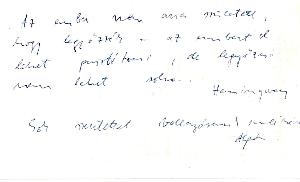 Az ember nem arra született,
hogy legyőzzék – az embert el
lehet pusztítani, de legyőzni
nem lehet soha.
Hemingway
Sok szeretettel